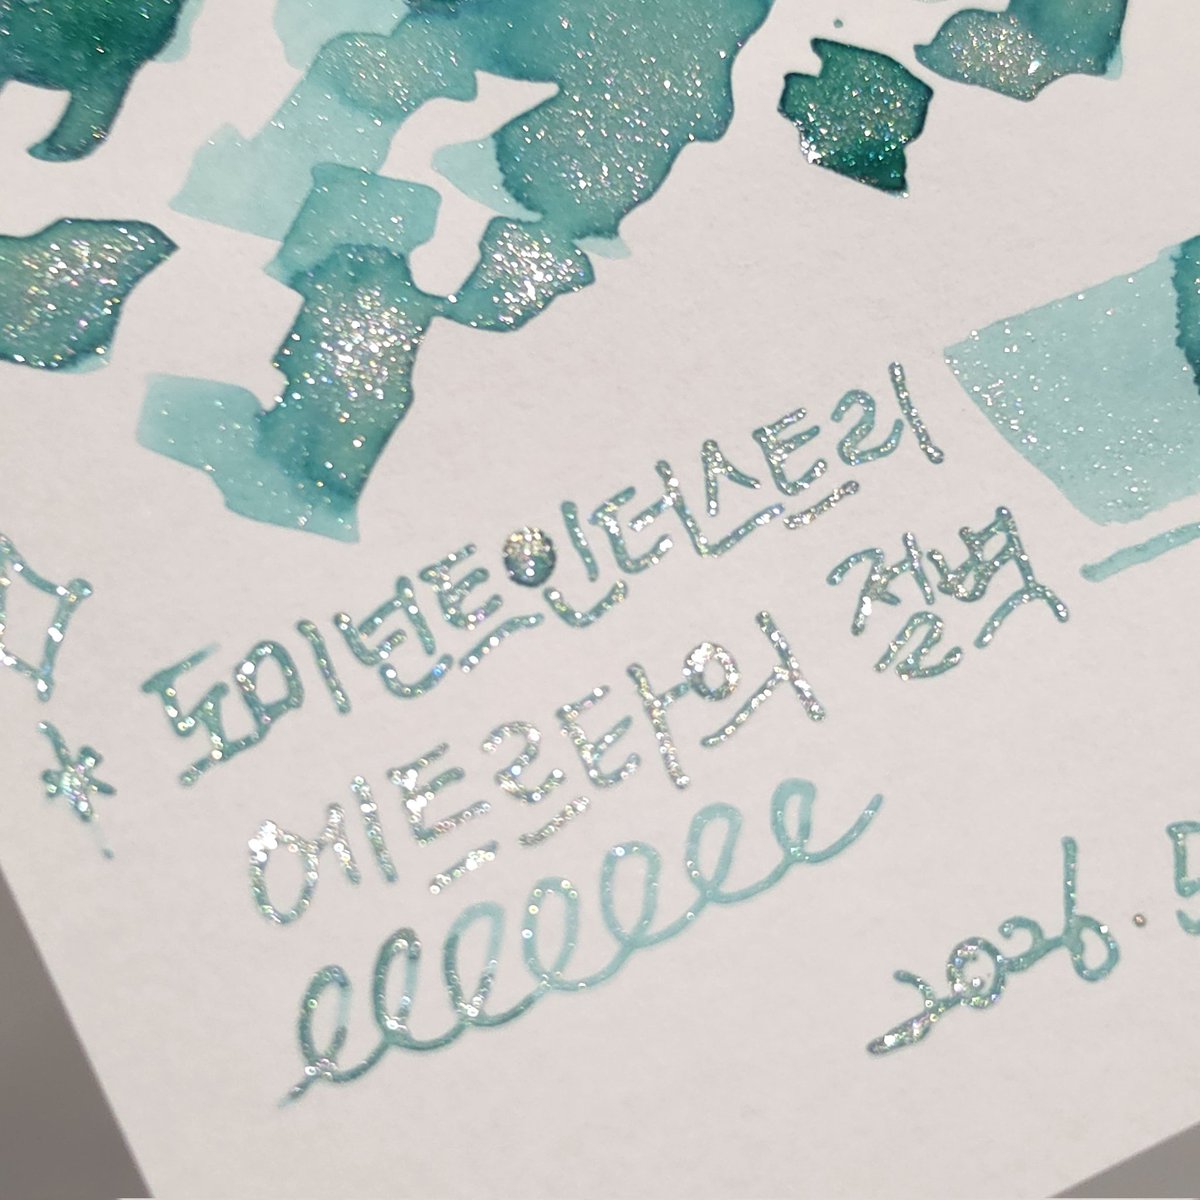 도미넌트인더스트리
에트르타의 절벽
2026. 5